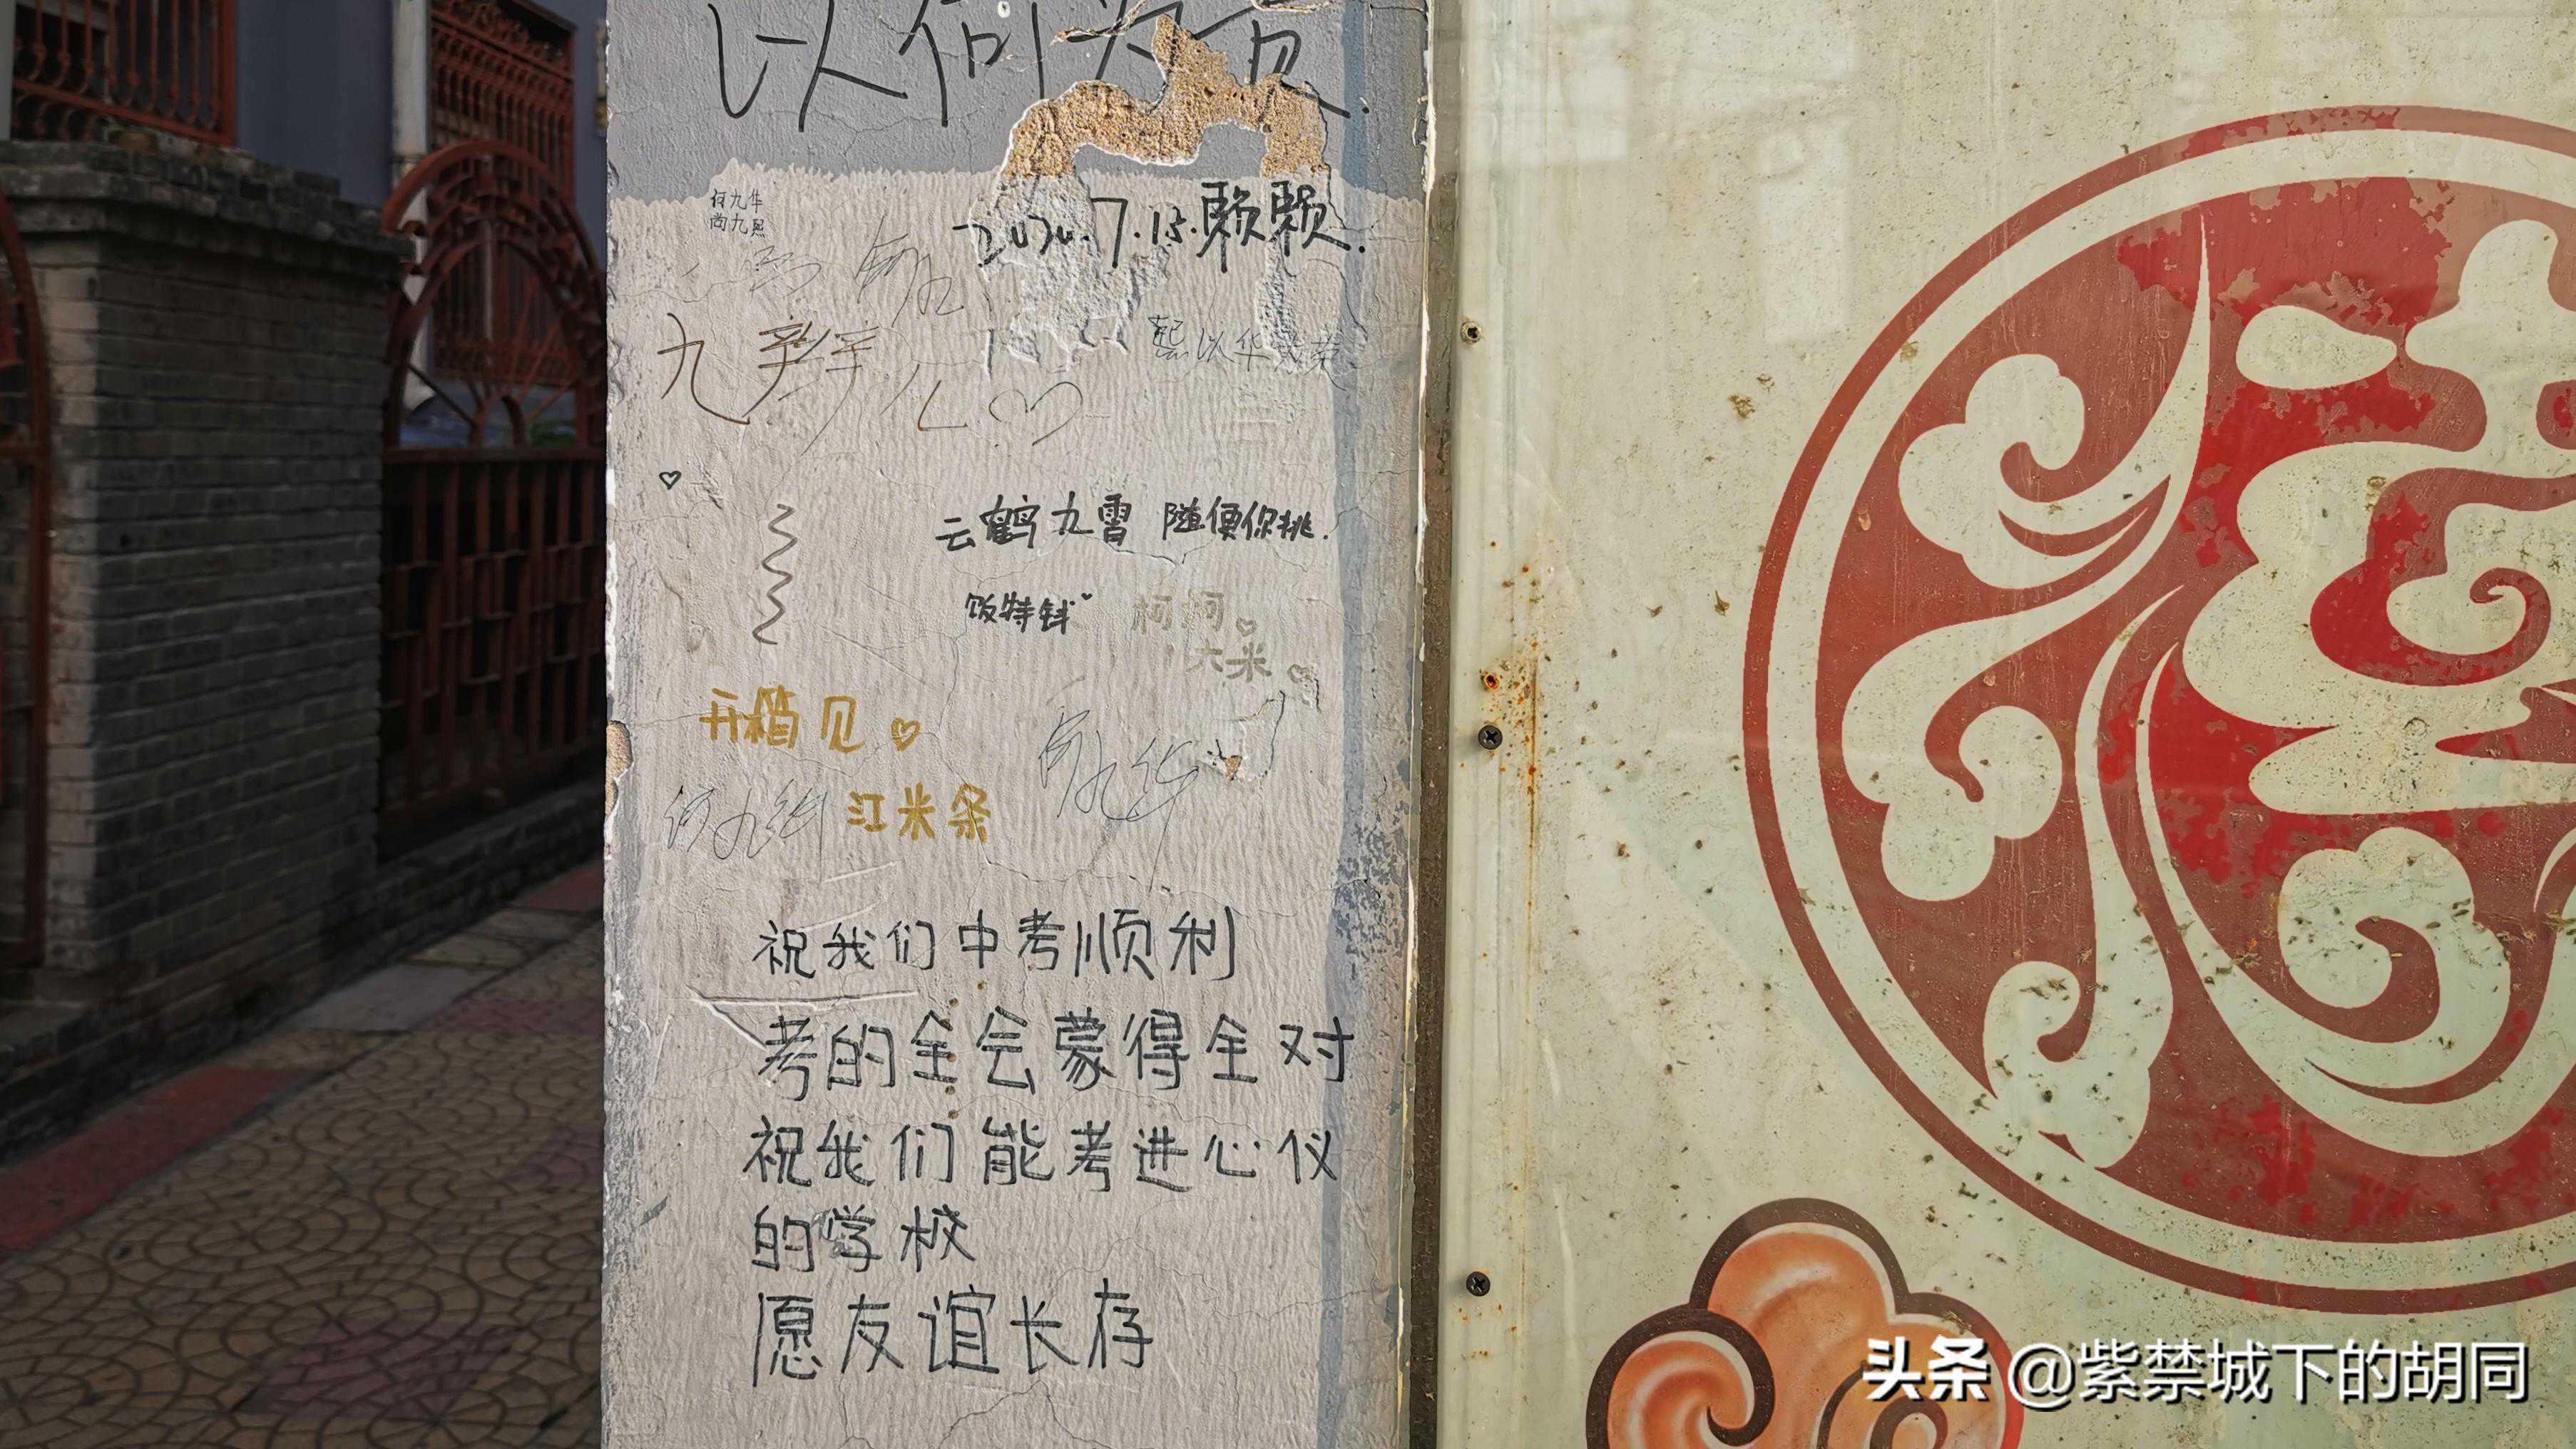 以何为
何九华
尚九熙
2020.7.15.赖赖.
熙以华为荣
云鹤九霄 随便你挑.
饭特钱
柯柯
大米
开箱见
何九华
江米条
祝我们中考顺利
考的全会蒙得全对
祝我们能考进心仪
的学校
愿友谊长存
头条 @紫禁城下的胡同